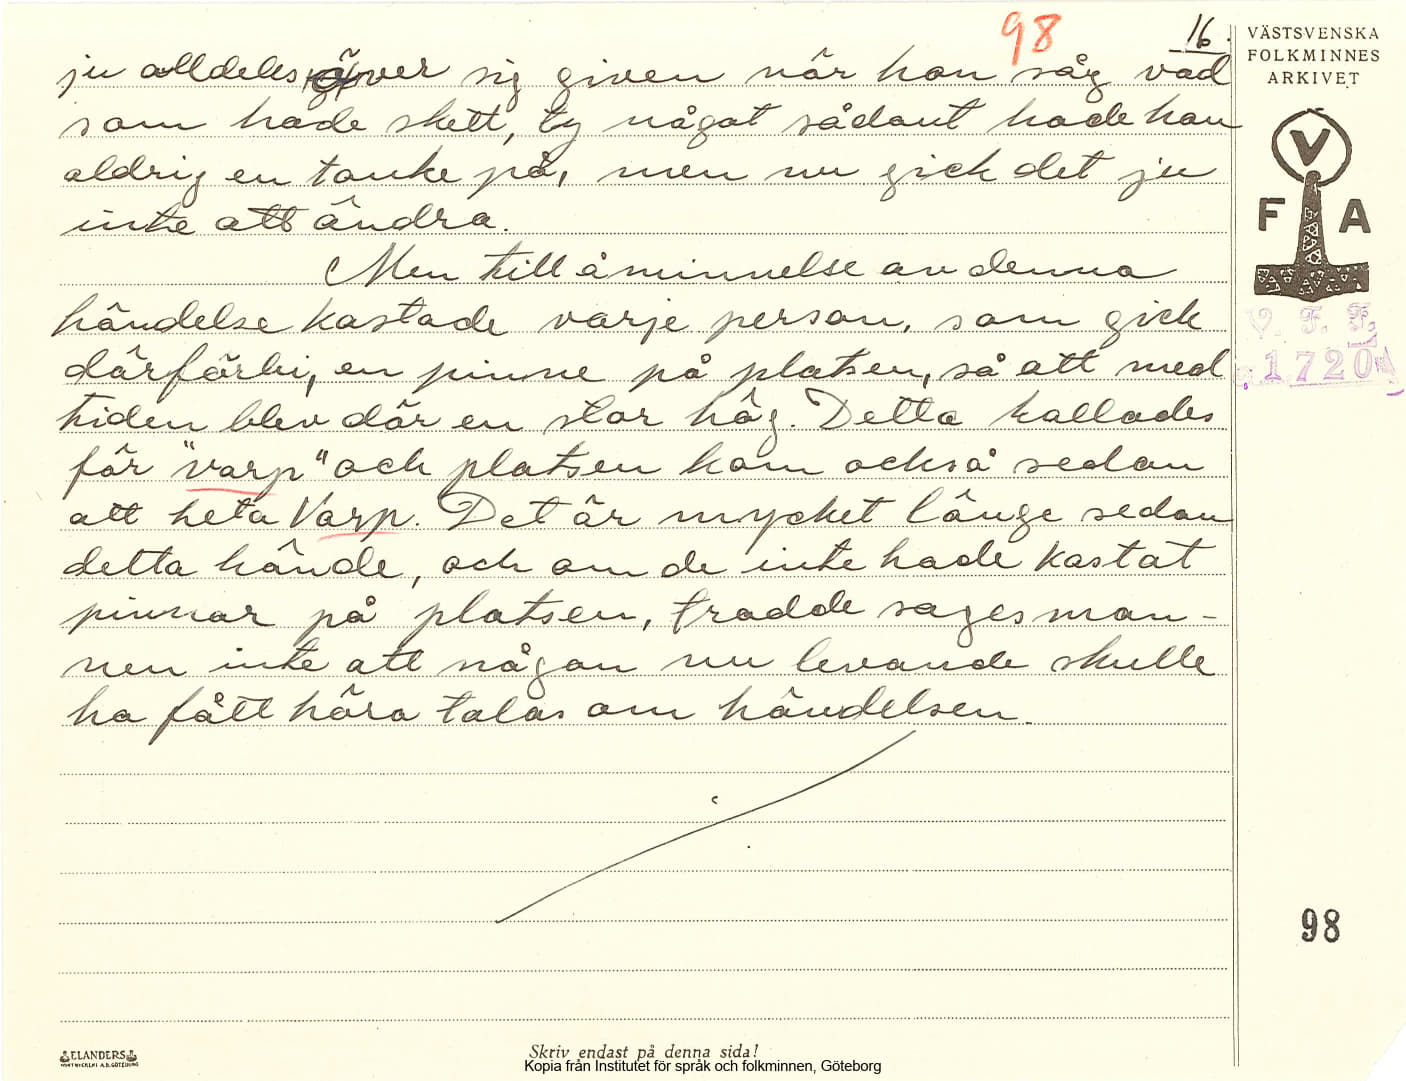 98
16.
VÄSTSVENSKA
FOLKMINNES
ARKIVET
ju alldeles över sig given når han såg vad
som hade skett, ty något sådant hade han
aldrig en tanke på, men nu gick det ju
inte att ändra.
Men till åminnelse av denna
händelse kastade varje person, som gick
därförbi, en pinne på platsen, så att med
tiden blev där en stor hög. Detta kallades
för "varp" och platsen kom också sedan
att heta Varp. Det är mycket länge sedan
detta hände, och om de inte hade kastat
pinnar på platsen, trodde sagesman-
nen inte att någon nu levande skulle
ha fått höra talas om händelsen.
V
F A
V. F. F.
1720
98
ELANDERS
Skriv endast på denna sida!
Kopia från Institutet för språk och folkminnen, Göteborg